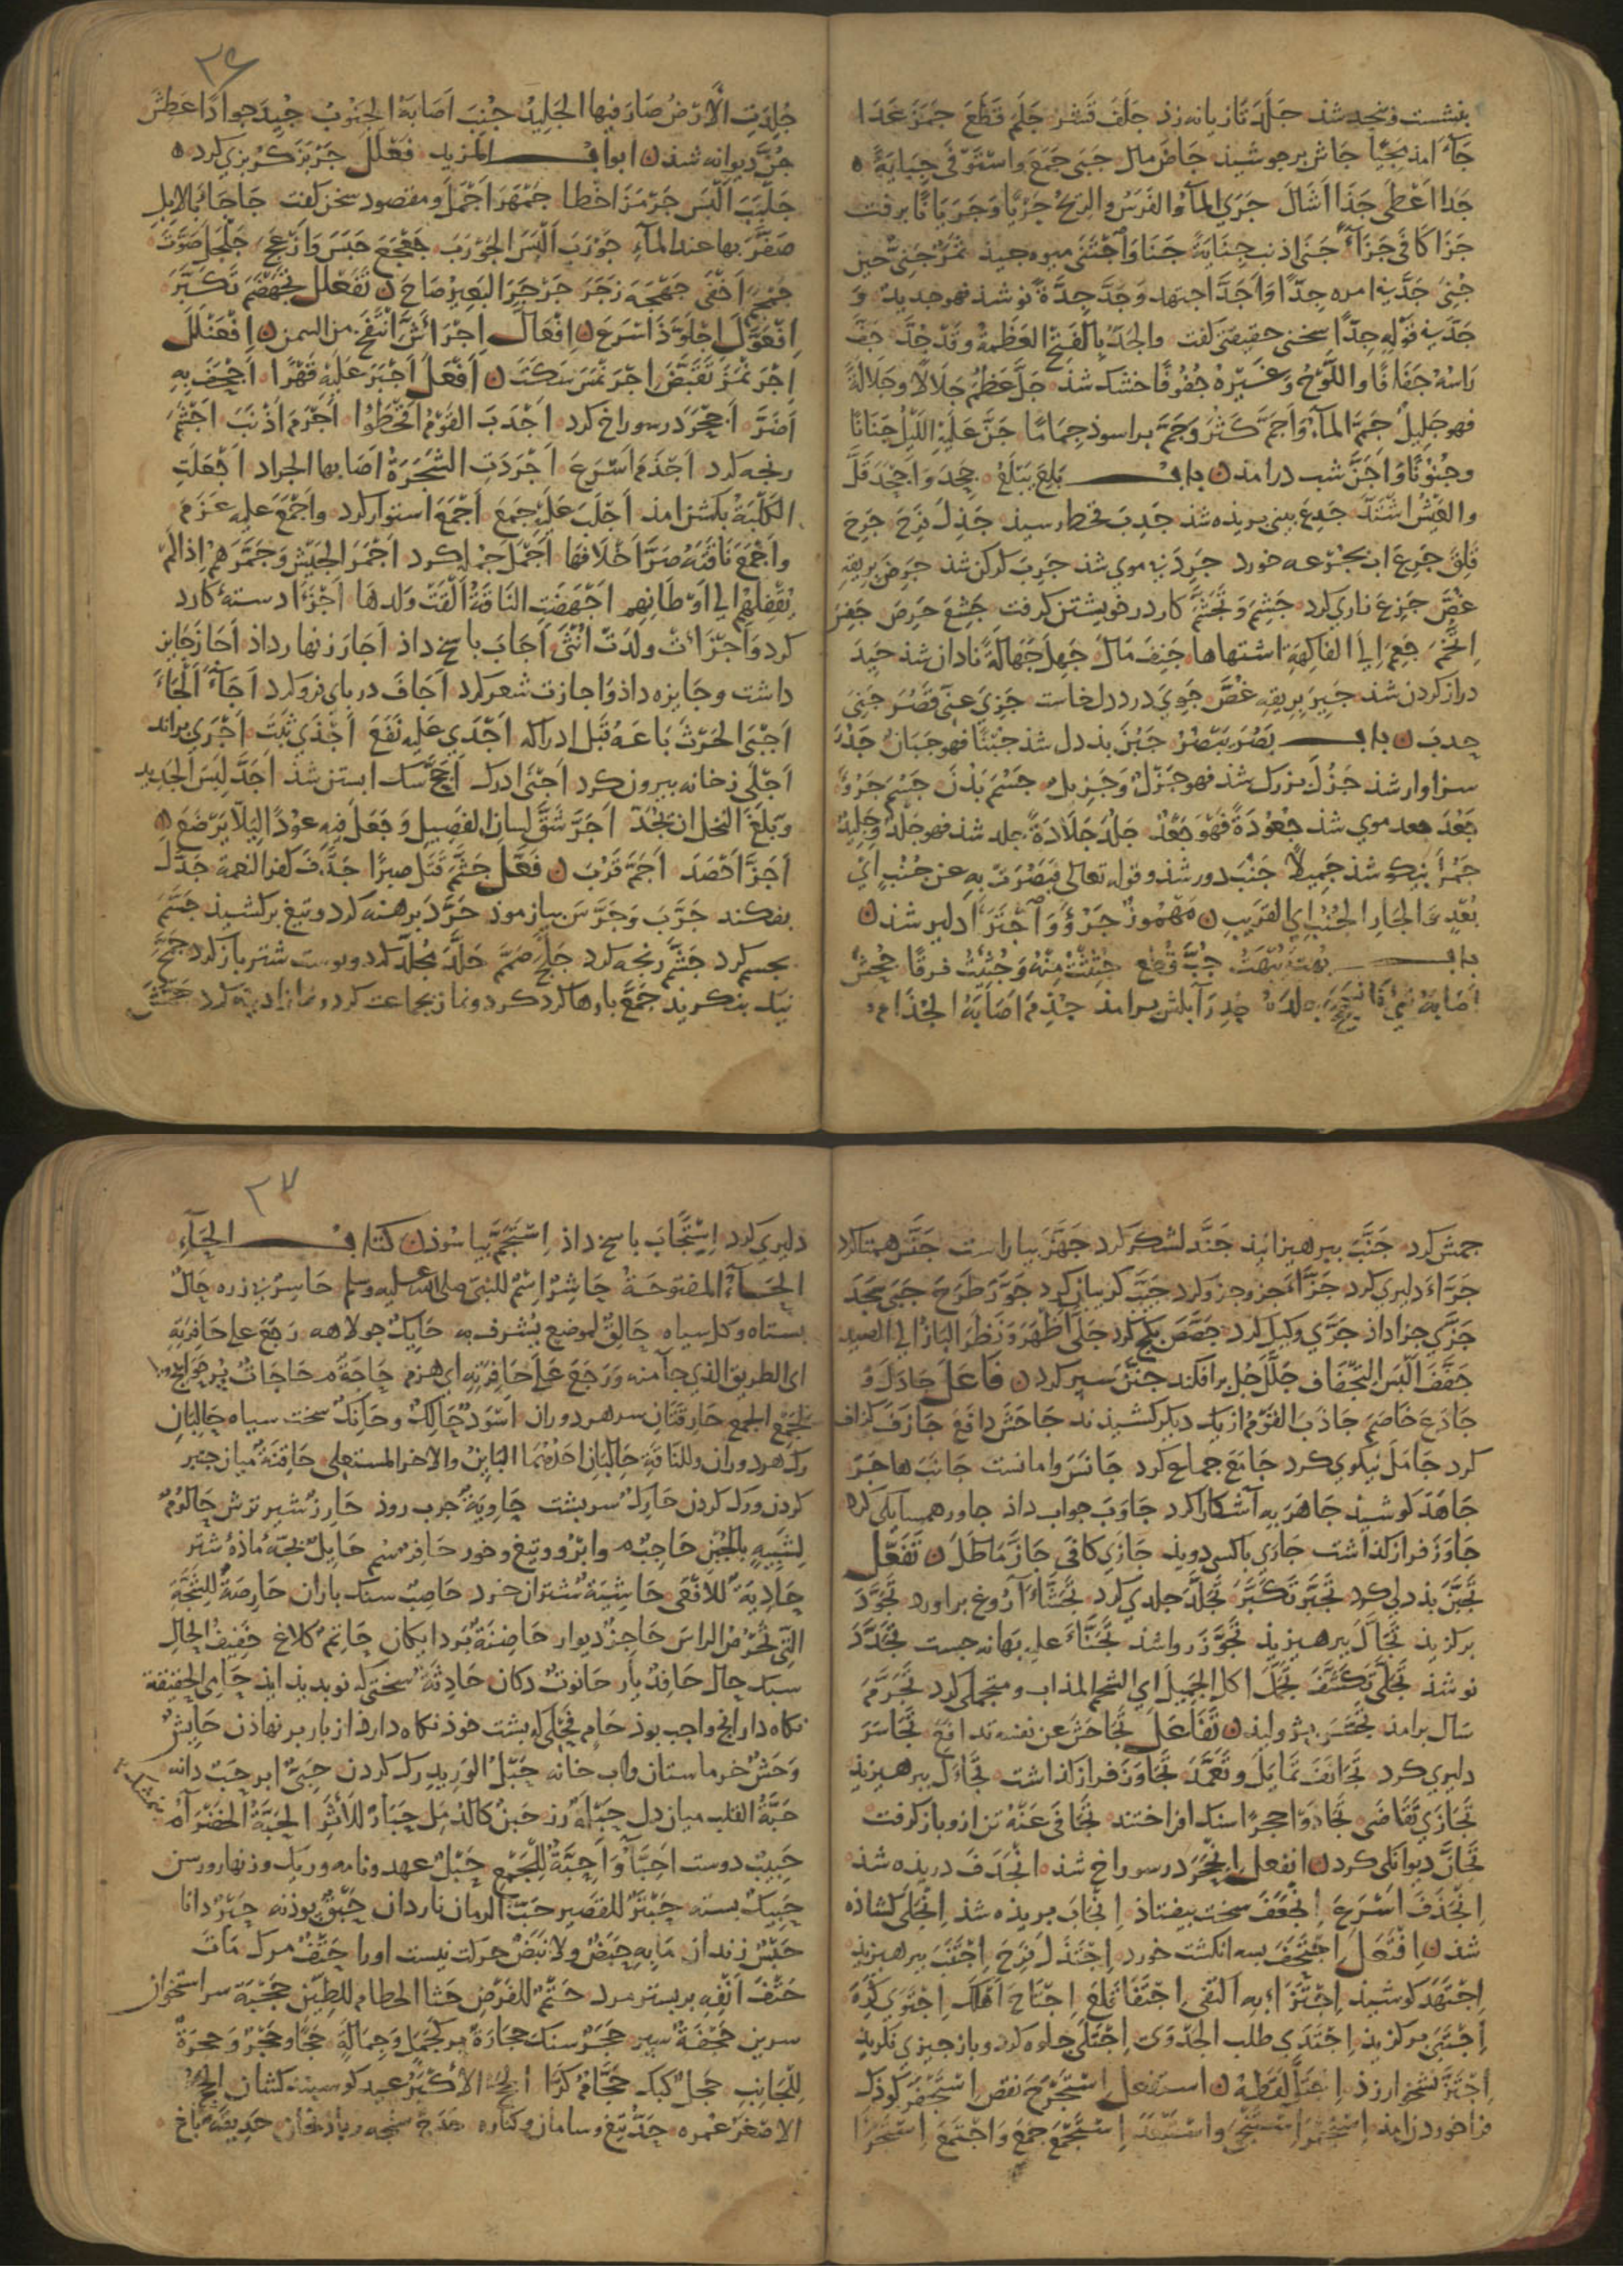 بنشست و نجد شذ جَلَدَ تازیانه زد جَلَفَ قَشَرَ جَلَمَ قَطَعَ جَمَزَ عَدَا
جَآءَ امذ مَجِیًا جَاشَ برجوشیذ جَاضَ مال جَبَی جَمَعَ واسْتَوْفَی جِبَایَةً
جَدَا اَعْطَی جَذَا اَشَالَ جَرَی المآءُ والفَرَسُ والریحُ جَرْیًا وَجَرَیَانًا برفت
جَزَا کَافَی جَزَآءً جَنَی اذنب جِنَایَةً جَنًا وَاجْتَنَی میوه چیذ ثَمَرٌ جَنِیٌّ حین
جُنِیَ جَدَّ فی امره جِدًّا وَاَجَدَّ اجتهد وَجَدَّ جِدَّةً نو شذ فهو جدیدٌ وَ
جَدَّ فی قَوْلِهِ جِدًّا سخنی حقیقتی گفت والجَدُّ بِالفَتْحِ العَظَمَةُ وَقَدْ جَدَّ جَفَّ
رَاسُهُ جَفَافًا واللَّوْحُ وَغَیْرُهُ جُفُوفًا خشک شذ جَلَّ عَظُمَ جَلَالًا وجَلَالَةً
فهو جلیلٌ جَمَّ المآءُ وَاَجَمَّ کَثُرَ وَجَمَّ براسوذ جِمَامًا جَنَّ عَلَیْهِ اللَّیْلُ جَنَانًا
وجُنُونًا وَاَجَنَّ شب درامذ ن باب بَلِعَ یَبْلَعُ جَحِدَ وَاَجْحَدَ قَلَّ
والعَیْشُ اشْتَدَّ جَدِعَ بینی بریذه شذ جَدِبَ قحط رسیذ جَذِلَ فَرِحَ جَرِجَ
قَلِقَ جَرِعَ اب بجرعه خورد جَرِدَ بی موی شذ جَرِبَ کرکن شذ جَرِضَ بریقه
غَصَّ جَزِعَ زاری کرد جَشِمَ وَتَجَشَّمَ کار در خویشتن کرفت جَشِعَ حَرِصَ جَفِسَ
اِتَّخَمَ جَعِمَ اِلَی الفاکهة اشتهاها جَنِفَ مَالَ جَهِلَ جَهَالَةً نادان شذ جَیِدَ
دراز کردن شذ جَیِزَ بریقه غَصَّ جَوِیَ درد دل خاست جَزِیَ عَنِّی قَصُرَ جَنِیَ
حدب ن باب بَصُرَ یَبْصُرُ جَبُنَ بذدل شذ جُبْنًا فهو جَبَانٌ جَدُرَ
سزاوار شذ جَزُلَ بزرک شذ فهو جَزْلٌ وَجَزِیلٌ جَسُمَ بَدُنَ جَسُمَ جَرُوَ
جَعُدَ جعد موی شذ جُعُودَةً فَهُوَ جَعْدٌ جَلُدَ جَلَادَةً جلد شذ فهو جَلْدٌ وجَلِیدٌ
جَمُلَ نیکو شذ جَمِیلًا جَنُبَ دور شذ وقوله تعالی فَبَصُرَتْ بِهِ عن جُنُبٍ اَیْ
بُعْدٍ وَ الجارِ الجُنُبِ ای الغَرِیبِ ن مَهْمُوزٌ جَرُؤَ وَ اجْتَرَاَ دلیر شذ ن
باب بُهِتَ یُبْهَتُ جُبَّ قُطِعَ جُئِثْتُ مِنْهُ وَجُثِثْتُ فرقًا جُحِشَ
اَصَابَهُ شَیْءٌ فَانْسَحَجَ جلده جُدِرَ آبلش برامذ جُذِمَ اَصَابَهُ الجُذَامُ
۳۶
جُلِدَتِ الاَرْضُ صَارَ فِیهَا الجَلِیدُ جُنِبَ اَصَابَهُ الجَنُوبُ جِیدَ جوادًا عَطِشَ
جُنَّ دیوانه شذ ن ابواب المزید فَعْلَلَ جَرْبَزَ کربزی کرد
جَلْبَبَ اَلْبَسَ جَرْمَزَ اخطا جَمْهَرَ اَجْمَلَ ومقصود سخن کفت جَاجَاَ بالابل
صَفَّرَ بها عند المآءِ جَوْرَبَ اَلْبَسَ الجَوْرَبَ جَعْجَعَ حَبَسَ وَاَزْعَجَ جَلْجَلَ صَوَّتَ
جَمْجَمَ اَخْفَی جَهْجَهَ زَجَرَ جَرْجَرَ البَعِیرُ صَاحَ ن تَفَعْلَلَ تَجَهْضَمَ تَکَبَّرَ
اِفْعَوَّلَ اِجْلَوَّذَ اَسْرَعَ ن اِفْعَالَّ اِجْرَاَشَّ انْتَفَخَ من السمن ن اِفْعَنْلَلَ
اِجْرَنْمَزَ تَقَبَّضَ اجْرَنْمَسَ سَکَتَ ن اَفْعَلَ اَجْبَرَ عَلَیْهِ قَهْرًا اَجْحَفَ بِهِ
اَضَرَّ اَجْحَرَ در سوراخ کرد اَجْدَبَ القَوْمُ اقْحَطُوا اَجْرَمَ اَذْنَبَ اَجْشَمَ
رنجه کرد اَجْذَمَ اَسْرَعَ اَجْرَدَتِ الشَّجَرَةُ اَصَابَها الجراد اَجْعَلَتِ
الکَلْبَةُ بکشن امذ اَجْلَبَ عَلَیْهِ جَمَعَ اَجْمَعَ استوار کرد واَجْمَعَ علیه عَزَمَ
واَجْمَعَ نَاقَتَهُ صَرَّ اَخْلَافَهَا اَجْمَلَ جمله کرد اَجْمَرَ الجَیْشَ وَجَمَّرَهُمْ اذا لم
یُقْفِلْهُمْ الی اَوْطَانِهِمْ اَجْهَضَتِ النَّاقَةُ اَلْقَتْ وَلَدَهَا اَجْزَاَ دستهٔ کارد
کرد وَاَجْزَاَتْ ولدَتْ اُنْثَی اَجَابَ پاسخ داذ اَجَارَ زنهار داذ اَجَازَ جایز
داشت وجایزه داذ وَاجازت شعر کرد اَجَافَ در بای فرو کرد اَجَآءَ اَلْجَاَ
اَجْبَی الحَرْثَ بَاعَهُ قَبْلَ ادراکه اَجْدَی عَلَیْهِ نَفَعَ اَجْذَی ثَبَتَ اَجْرَی براند
اَجْلَی زخانه بیرون کرد اَجْنَی ادرک اَجَحَّ سک ابستن شذ اَجَدَّ لَبِسَ الجَدِید
وَبَلَغَ النخل ان یُجَدَّ اَجَرَّ شَقَّ لِسَانَ الفَصِیلِ وَجَعَلَ فِیهِ عُوْدًا لِئَلَّا یَرْضَعَ ن
اَجَزَّ اَحْصَدَ اَجَمَّ قَرُبَ ن فَعَّلَ جَثَّمَ قَتَلَ صبرًا جَدَّفَ کفر النعمة جَدَّلَ
بفکند جَرَّبَ وَجَرَّسَ بیازموذ جَرَّدَ برهنه کرد و تیغ برکشیذ جَسَّمَ
بجسم کرد جَشَّمَ رنجه کرد جَلَّحَ صَمَّمَ جَلَّدَ مُجَلَّد کرد و پوست شتر باز کرد جَمَّحَ
نیک بنکریذ جَمَّعَ بارها کرد کرد ونماز بجماعت کرد و نماز آدینه کرد جَمَّشَ
جمش کرد جَنَّبَ ببرهیزانید جَنَّدَ لشکر کرد جَهَّزَ بیاراست جَنَّسَ همتا کرد
جَرَّاَ دلیری کرد جَزَّاَ جزو جزو کرد جَیَّبَ کریبان کرد جَوَّرَ طَرَحَ جَبَّی سَجَدَ
جَزَّی جزا داذ جَرَّی وکیل کرد جَصَّصَ بکچ کرد جَلَّی اَظْهَرَ وَنَظَرَ البَازُ الی الصید
جَفَّفَ اَلْبَسَ التِّجْفَاف جَلَّلَ جل برافکند جَنَّنَ سپر کرد ن فَاعَلَ جَادَلَ وَ
جَادَعَ خَاصَمَ جَاذَبَ القَوْمُ از یک دیکر کشیذند جَاحَشَ دَافَعَ جَازَفَ کزاف
کرد جَامَلَ نیکوی کرد جَامَعَ جماع کرد جَانَسَ وامانست جَانَبَ هَاجَرَ
جَاهَدَ کوشید جَاهَرَ بِهِ آشکارا کرد جَاوَبَ جواب داذ جاور همسایکی کرد
جَاوَزَ فراز کذاشت جَارَی باکسی دوید جَازَی کافَی جَارَّ مَاطَلَ ن تَفَعَّلَ
تَجَبَّنَ بذ دلی کرد تَجَبَّرَ تَکَبَّرَ تَجَلَّدَ جلدی کرد تَجَشَّاَ آروغ براورد تَجَوَّدَ
برکزیذ تَجَالَّ ببرهیزیذ تَجَوَّزَ رواشذ تَجَنَّاَ علیه بهانه جست تَجَدَّدَ
نوشذ تَجَلَّی تَکَشَّفَ تَجَمَّلَ اکل الجَمِیلَ ای الشحم المذاب ومتجملی کرد تَجَرَّمَ
سَال برامذ تَجَسَّسَ بژولیذ ن تَفَاعَلَ تَجَاحَشَ عن نفسه تدافَعَ تَجَاسَرَ
دلیری کرد تَجَانَفَ تَمَایَلَ وتَعَمَّدَ تَجَاوَزَ فراز کذاشت تَجَالَّ ببرهیزیذ
تَجَازَی تَقَاضَی تَجَاذَوْا حجرًا سنک افراختند تَجَافَی عَنْهُ تن ازو بازکرفت
تَجَانَّ دیوانکی کرد ن انفعل اِنْجَحَرَ درسوراخ شذ انْجَدَفَ دریذه شذ
اِنْجَذَفَ اَسْرَعَ اِنْجَعَفَ سخت بیفتاذ اِنْجَابَ بریذه شذ اِنْجَلَی کشاذه
شذ ن اِفْتَعَلَ اِجْتَحَفَ بسه انکشت خورد اِجْتَذَلَ فَرِحَ اِجْتَنَبَ ببرهیزیذ
اِجْتَهَدَ کوشیذ اِجْتَزَاَ به اکتَفَی اِجْتَفَاَ قَلَعَ اِجْتَاحَ اَهْلَکَ اِجْتَوَی کَرِهَ
اِجْتَبَی برکزیذ اِجْتَدَی طلب الجَدْوَی اِجْتَلَی جلوه کرد و باز جیزی نکریذ
اِجْتَرَّ نشخوار زذ اِجْتَلَّ لَقَطَهُ ن استفعل اِسْتَجْرَحَ نقص اِسْتَجْفَرَ کوذک
فراخورد زامذ اِسْتَجْمَرَ اسْتَنْجَی واستبعد اِسْتَجْمَعَ جَمَعَ وَاجْتَمَعَ اِسْتَجْرَاَ
۳۷
دلیری کرد اِسْتَجَابَ پاسخ داذ اِسْتَجَمَّ بیاسوذ ن کتاب الحَآءِ
الحَآءُ المفتوحَةُ حَاشِرٌ اسْمٌ للنبی صلی الله علیه وسلم حَاسِرٌ بی زره حَالٌ
بستاه وکل سیاه حَالِقٌ لموضع یُشْرَفُ به حَایِکٌ جولاهه رَجَعَ علی حَافِرَتِهِ
ای الطریق الذی جآ منه وَرَجَعَ عَلَی حَافِرَتِهِ ای هَرِمَ حَاجَةٌ حَاجَاتٌ حَوَایِجُ
لجَمْعِ الجمع حَارِقَتَانِ سر هر دو ران اَسْوَدُ حَالِکٌ وحَانِکٌ سخت سیاه حَالِبَانِ
رک هر دو ران وللنَّاقَةِ حَالِبَانِ اَحَدُهُمَا البَایِنُ والاخر المستعلی حَاقِنَةٌ میان جنبر
کردن ورک کردن حَارِکٌ سر بشت حَاوِیَةٌ جرب روذ حَازِرٌ شیر ترش حَالُومٌ
لِشَبِیهٍ بِالجُبْنِ حَاجِبٌ وابرُو وتیغ خور حَافِرٌ سُم حَایِلٌ بجهٔ ماذهٔ شتر
حَارِیَةٌ للاَفْعَی حَاشِیَةٌ شتران خرد حَاصِبٌ سنک باران حَارِصَةٌ لِلشَّجَّةِ
الَّتی تَحْرُصُ الراسَ حَاجِزٌ دیوار حَاضِنَةٌ حَاتِمٌ کلاغ خَفِیفُ الحالِ
سبک حال حَافِدٌ یار حَانُوتٌ دکان حَادِثَةٌ سختی که نو بدید اید حَامِی الحَقِیقَة
نکاه دار انچ واجب بوذ حَامٍ فحلی که بشت خوذ نکاه دارد از بار برنهاذن حَایِشٌ
وَحَشٌّ خرماستان واب خانه حَبْلُ الوَرِیدِ رک کردن حَبِیٌّ ابر حَبٌّ دانه
حَبَّةُ القلب میان دل حَبْلَةٌ رز حَبْنٌ کالدُمَّل حَبَارٌ للاَثَر الحَبَّةُ الخَضْرَآءُ
حَبِیبٌ دوست اَحِبَّآءُ وَاَحِبَّةٌ لِلْجَمْعِ حَبْلٌ عهد ونامه وریک وزنهار ورسن
حَبِیکٌ بسته حَبْتَرٌ للقصیر حَبُّ الرمان ناردان حَبَقٌ بوذنه حَبْرٌ دانا
حَبْسٌ زندان مَا بِهِ حَبَضٌ ولا نَبَضٌ حرکت نیست اورا حَتْفٌ مرک مَاتَ
حَتْفَ اَنْفِهِ بر بستر مرد حَتْمٌ للفَرْضِ حَثَا الحطام للطِّینِ حَجَبَةٌ سر استخوان
سرین حَجَفَةٌ سپر حَجَرٌ سنک حِجَارَةٌ مر کجَمَلٍ وَجِمَالَةٍ حَجًا وحَجْرٌ وَحَجْرَةٌ
لِلْجَانِبِ حَجَلٌ کبک حَجَّامٌ کرّا الحَجُّ الاَکْبَرُ عید کوسپند کشان الحَجُّ
الاصْغَرُ عمره حَدٌّ تیغ وسامان وکناره حَدَجٌ حَدِیقَةٌ باغ